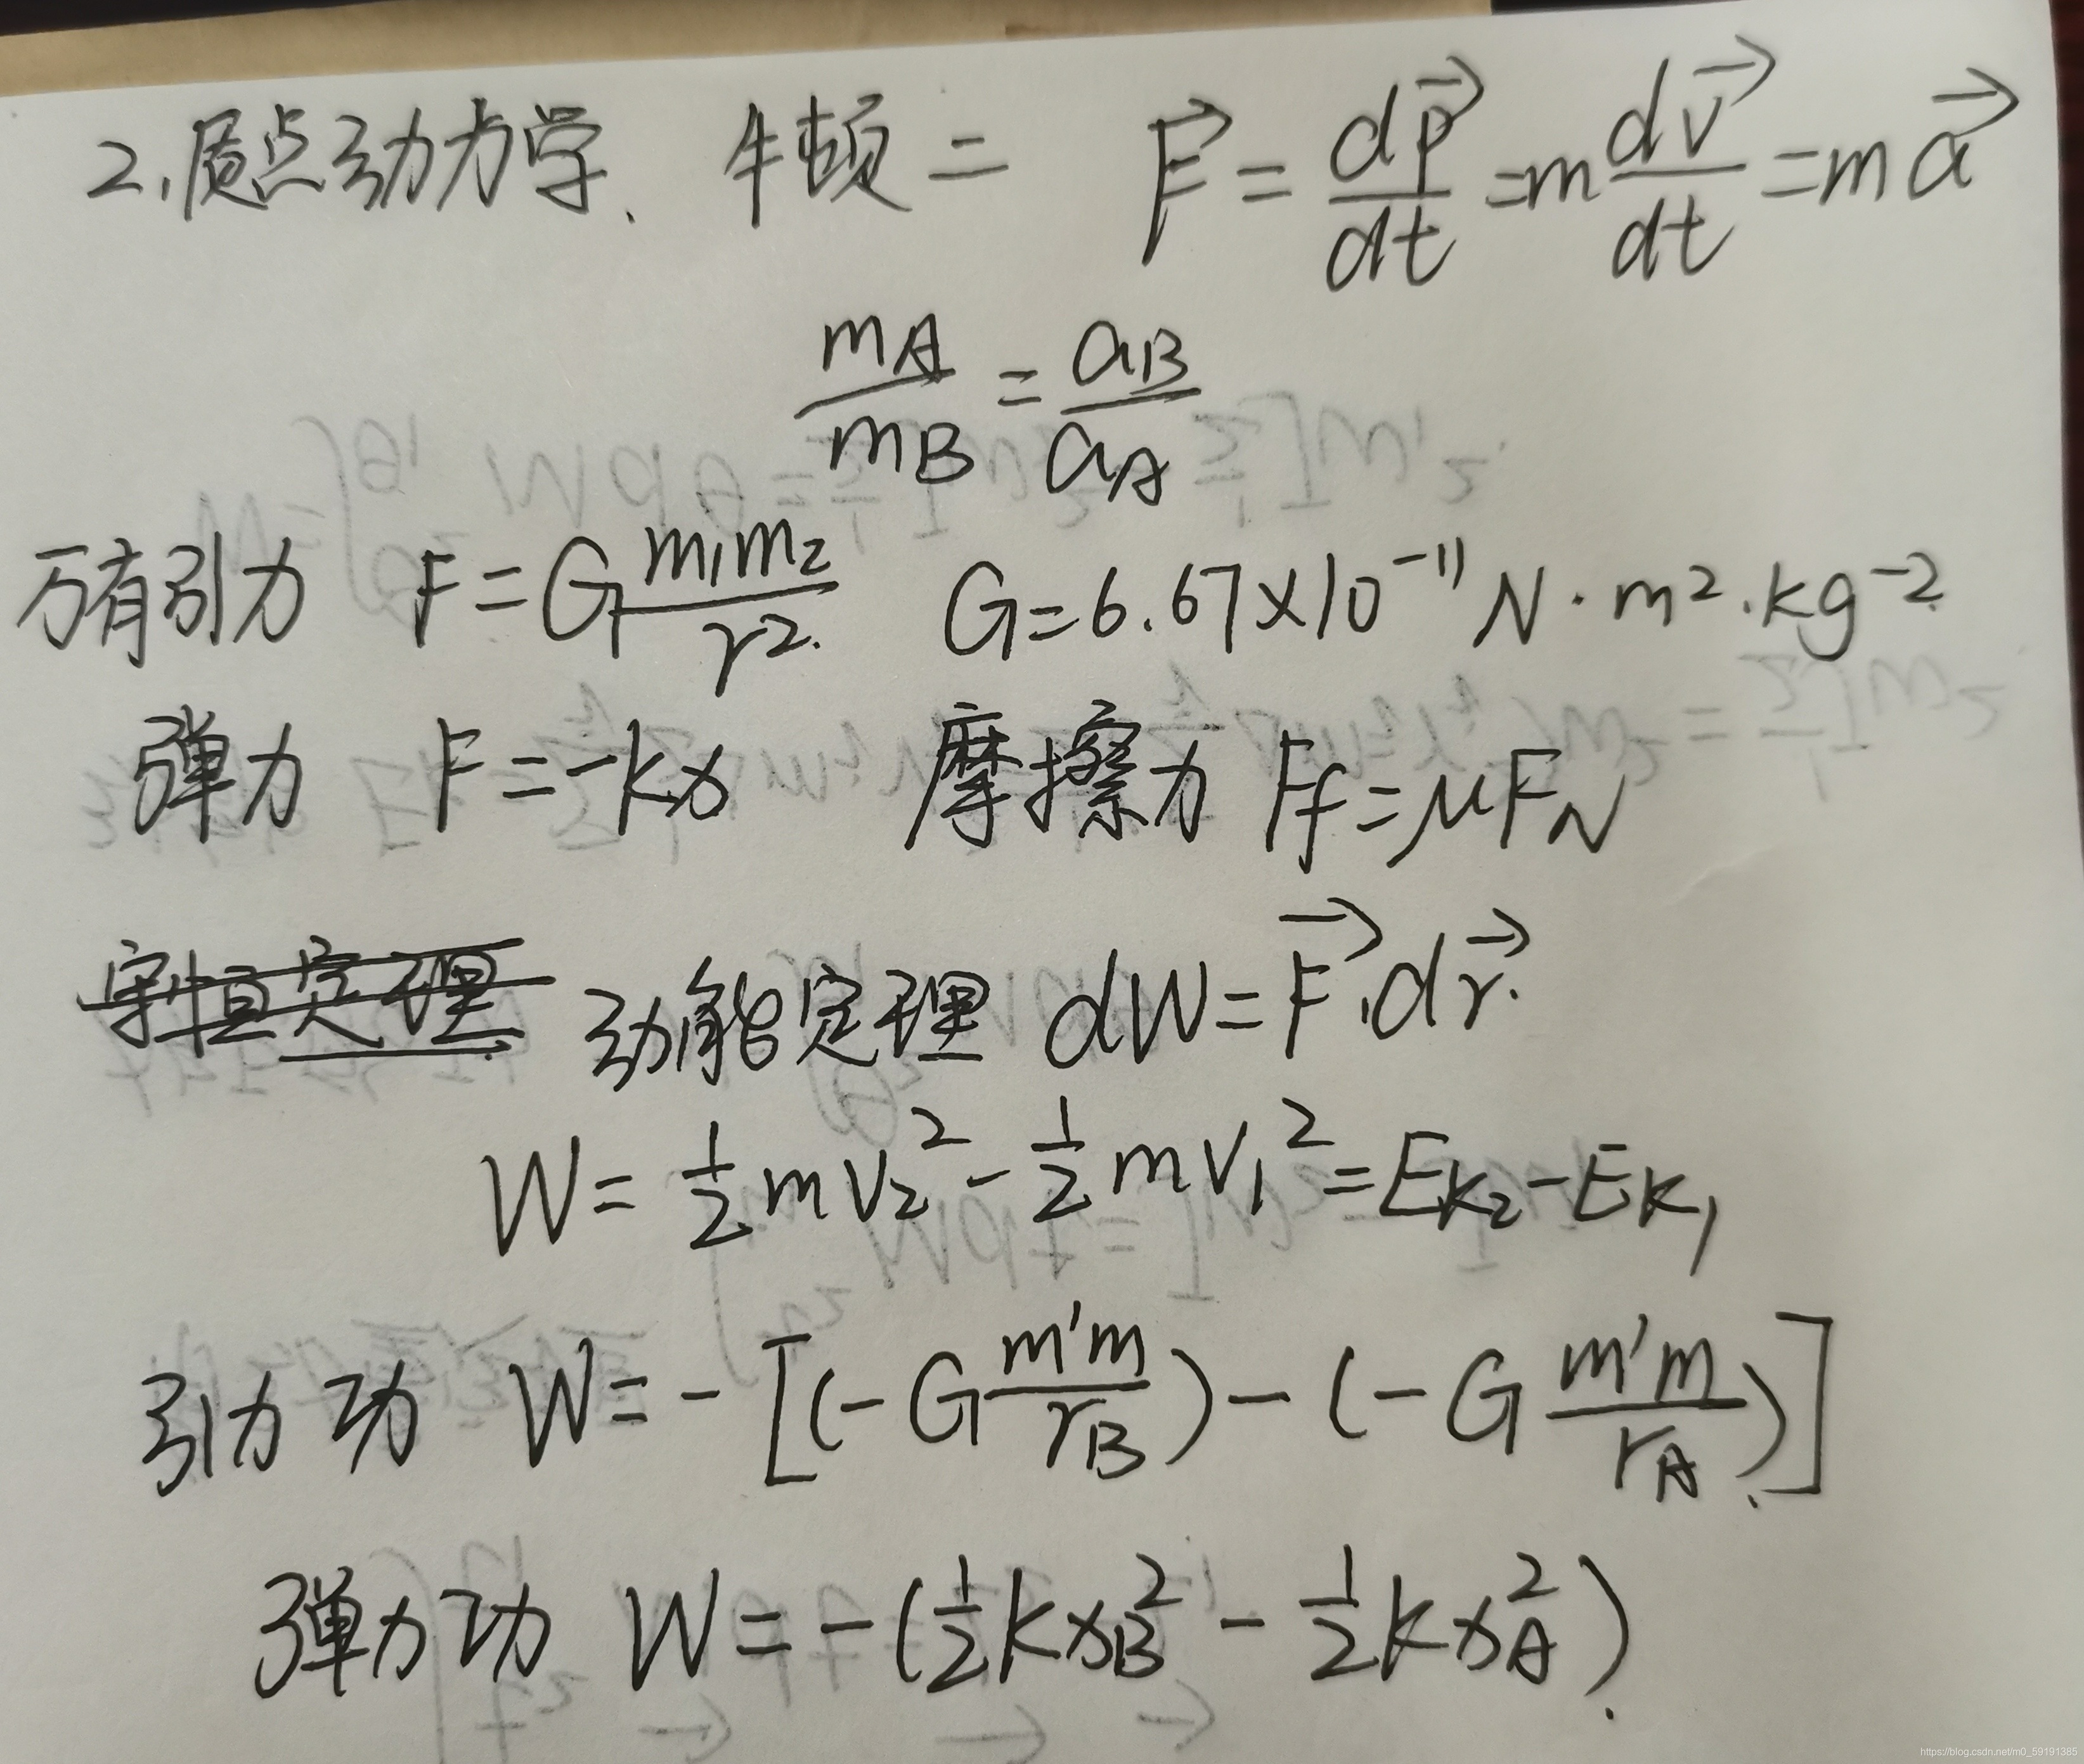 2.质点动力学. 牛顿二 \vec{F}=\frac{d\vec{p}}{dt}=m\frac{d\vec{v}}{dt}=m\vec{a}
\frac{m_A}{m_B}=\frac{a_B}{a_A}
万有引力 F=G\frac{m_1m_2}{r^2}. G=6.67×10^{-11}N·m^2·kg^{-2}
弹力 F=-kx 摩擦力 F_f=μF_N
守恒定理 动能定理 dW=\vec{F}·d\vec{r}.
W=\frac{1}{2}mv_2^2-\frac{1}{2}mv_1^2=E_{k2}-E_{k1}
引力功 W=-[(-G\frac{m'm}{r_B})-(-G\frac{m'm}{r_A})]
弹力功 W=-(\frac{1}{2}kx_B^2-\frac{1}{2}kx_A^2).
https://blog.csdn.net/m0_59191385